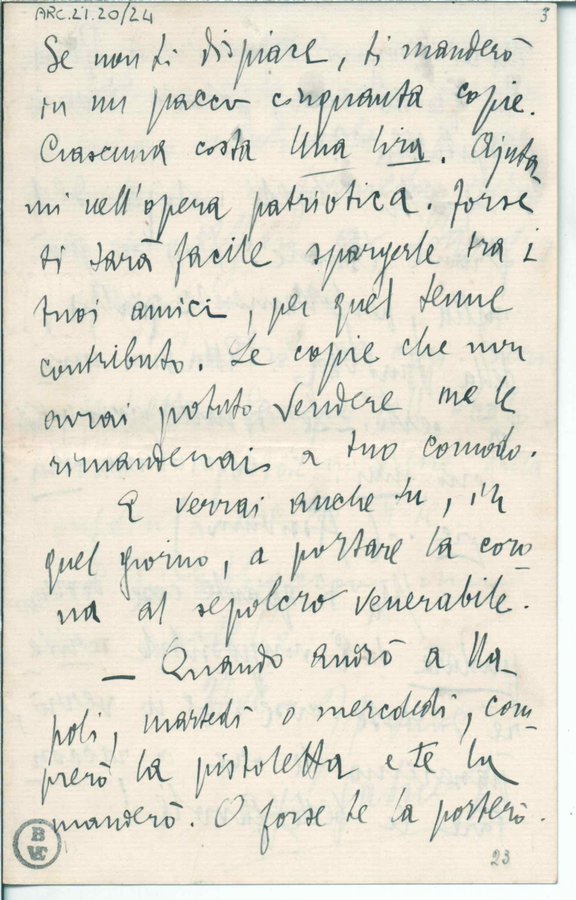 ARC.21.20/24
3
Se non ti dispiace, ti manderò
in un pacco cinquanta copie.
Ciascuna costa una lira. Ajuta-
mi nell'opera patriotica. Forse
ti sarà facile spargerle tra i
tuoi amici, per quel tenue
contributo. Le copie che non
avrai potuto vendere me le
rimanderais a tuo comodo.
E verrai anche tu, in
quel giorno, a portare la coro-
na al sepolcro venerabile.
— Quando andrò a Na-
poli, martedì o mercoledì, com-
prerò la pistoletta e te la
manderò. O forse te la porterò.
23